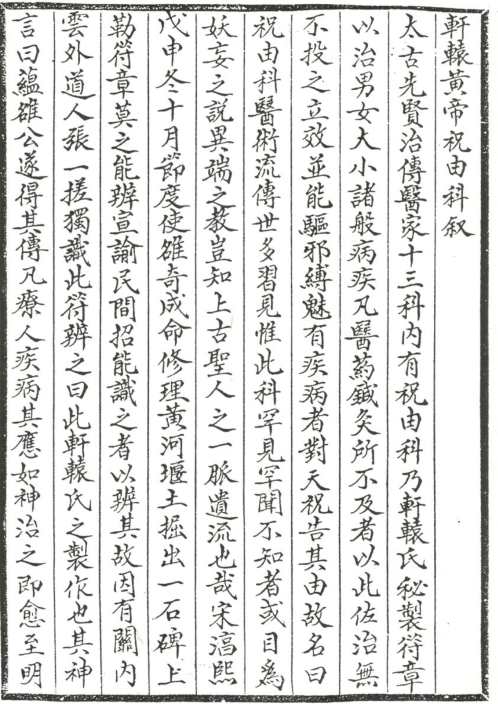 軒轅黃帝祝由科叙
太古先賢治傳醫家十三科內有祝由科乃軒轅氏秘製符章
以治男女大小諸般病疾凡醫药鍼灸所不及者以此佐治無
不投之立效並能驅邪縛魅有疾病者對天祝告其由故名曰
祝由科醫術流傳世多習見惟此科罕見罕聞不知者或目爲
妖妄之説異端之教豈知上古聖人之一脈遺流也哉宋淳熙
戊申冬十月節度使雒奇成命修理黃河堰土掘出一石碑上
勒符章莫之能辨宣諭民間招能識之者以辨其故因有關內
雲外道人張一搓獨識此符辨之曰此軒轅氏之製作也其神
言曰蘊雒公遂得其傳凡療人疾病其應如神治之即愈至明